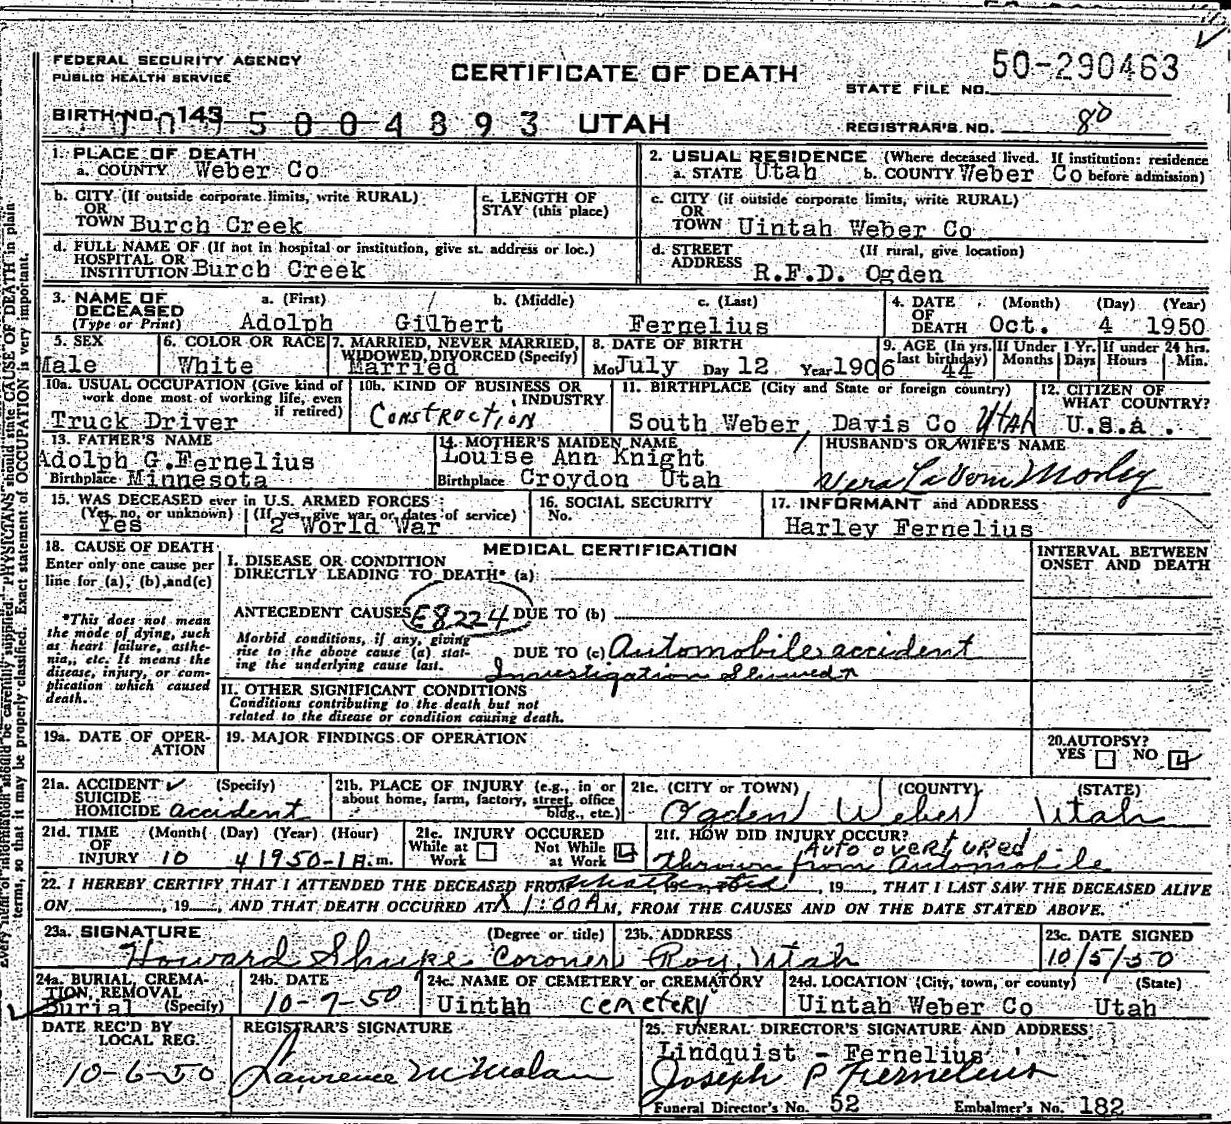 FEDERAL SECURITY AGENCY
PUBLIC HEALTH SERVICE
CERTIFICATE OF DEATH
50-290463
STATE FILE NO.
BIRTH NO. 143
UTAH
REGISTRAR'S NO. 80
1. PLACE OF DEATH
a. COUNTY Weber Co
2. USUAL RESIDENCE (Where deceased lived. If institution: residence
a. STATE Utah b. COUNTY Weber Co before admission)
b. CITY (If outside corporate limits, write RURAL)
OR
TOWN Burch Creek
c. LENGTH OF
STAY (this place)
c. CITY (if outside corporate limits, write RURAL)
OR
TOWN Uintah Weber Co
d. FULL NAME OF (If not in hospital or institution, give st. address or loc.)
HOSPITAL OR
INSTITUTION Burch Creek
d. STREET (If rural, give location)
ADDRESS
R.F.D. Ogden
3. NAME OF a. (First) b. (Middle) c. (Last)
DECEASED
(Type or Print) Adolph Gilbert Fernelius
4. DATE (Month) (Day) (Year)
OF
DEATH Oct. 4 1950
5. SEX
Male
6. COLOR OR RACE
White
7. MARRIED, NEVER MARRIED,
WIDOWED, DIVORCED (Specify)
Married
8. DATE OF BIRTH
Mo July Day 12 Year 1906
9. AGE (In yrs.
last birthday) 44
If Under 1 Yr.
Months Days
If under 24 hrs.
Hours Min.
10a. USUAL OCCUPATION (Give kind of
work done most of working life, even
if retired)
Truck Driver
10b. KIND OF BUSINESS OR
INDUSTRY
Construction
11. BIRTHPLACE (City and State or foreign country)
South Weber, Davis Co Utah
12. CITIZEN OF
WHAT COUNTRY?
U.S.A.
13. FATHER'S NAME
Adolph G. Fernelius
Birthplace Minnesota
14. MOTHER'S MAIDEN NAME
Louise Ann Knight
Birthplace Croydon Utah
HUSBAND'S OR WIFE'S NAME
Vera LaVon Morley
15. WAS DECEASED ever in U.S. ARMED FORCES
(Yes, no, or unknown) (If yes, give war or dates of service)
Yes 2 World War
16. SOCIAL SECURITY
No.
17. INFORMANT and ADDRESS
Harley Fernelius
18. CAUSE OF DEATH
Enter only one cause per
line for (a), (b), and (c)
*This does not mean
the mode of dying, such
as heart failure, asthe-
nia, etc. It means the
disease, injury, or com-
plication which caused
death.
MEDICAL CERTIFICATION
I. DISEASE OR CONDITION
DIRECTLY LEADING TO DEATH* (a)
ANTECEDENT CAUSES E8224 DUE TO (b)
Morbid conditions, if any, giving
rise to the above cause (a) stat-
ing the underlying cause last.
DUE TO (c) Automobile accident
Investigation Showed
II. OTHER SIGNIFICANT CONDITIONS
Conditions contributing to the death but not
related to the disease or condition causing death.
INTERVAL BETWEEN
ONSET AND DEATH
19a. DATE OF OPER-
ATION
19. MAJOR FINDINGS OF OPERATION
20. AUTOPSY?
YES NO
21a. ACCIDENT (Specify)
SUICIDE
HOMICIDE accident
21b. PLACE OF INJURY (e.g., in or
about home, farm, factory, street, office
bldg., etc.)
21c. (CITY or TOWN) (COUNTY) (STATE)
Ogden Weber Utah
21d. TIME (Month) (Day) (Year) (Hour)
OF
INJURY 10 4 1950-1A.m.
21e. INJURY OCCURED
While at Not While
Work at Work
21f. HOW DID INJURY OCCUR?
Auto overtured
Thrown from Automobile
22. I HEREBY CERTIFY THAT I ATTENDED THE DECEASED FROM , 19 , THAT I LAST SAW THE DECEASED ALIVE
ON , 19 , AND THAT DEATH OCCURED AT 1:00A M, FROM THE CAUSES AND ON THE DATE STATED ABOVE.
23a. SIGNATURE (Degree or title)
Howard Shupe Coroner
23b. ADDRESS
Roy, Utah
23c. DATE SIGNED
10/5/50
24a. BURIAL, CREMA-
TION REMOVAL
Burial (Specify)
24b. DATE
10-7-50
24c. NAME OF CEMETERY or CREMATORY
Uintah cemetery
24d. LOCATION (City, town, or county) (State)
Uintah Weber Co Utah
DATE REC'D BY
LOCAL REG.
10-6-50
REGISTRAR'S SIGNATURE
Lawrence
25. FUNERAL DIRECTOR'S SIGNATURE AND ADDRESS
Lindquist - Fernelius
Joseph P Fernelius
Funeral Director's No. 52 Embalmer's No. 182